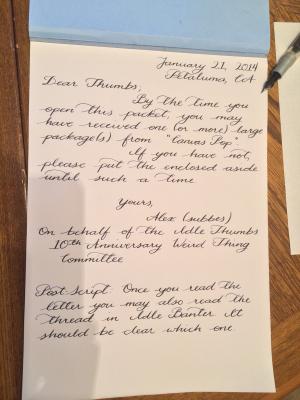 January 21, 2014
Petaluma, CA
Dear Thumbs,
By the time you
open this packet, you may
have received one (or more) large
package(s) from "Canvas Pop".
If you have not,
please put the enclosed aside
until such a time.
Yours,
Alex (subbes)
On behalf of the Idle Thumbs
10th Anniversary Weird Thing
Committee
Post Script. Once you read the
letter you may also read the
thread in Idle Banter. It
should be clear which one.